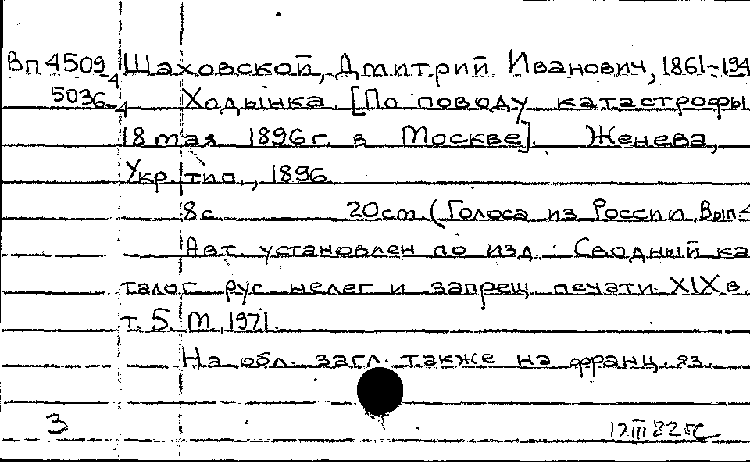 Вп 4509 Шаховской, Дмитрий Иванович, 1861-194
4
5036 Ходынка. [По поводу катастрофы
4
18 мая 1896 г. в Москве]. Женева,
Укр. тип., 1896.
8 с. 20 см. (Голоса из России. Вып.
Авт. установлен по изд.: Сводный ка-
талог рус. нелег. и запрещ. печати XIX в.
т. 5. М., 1971.
На обл. загл. также на франц. яз.
3 III 82